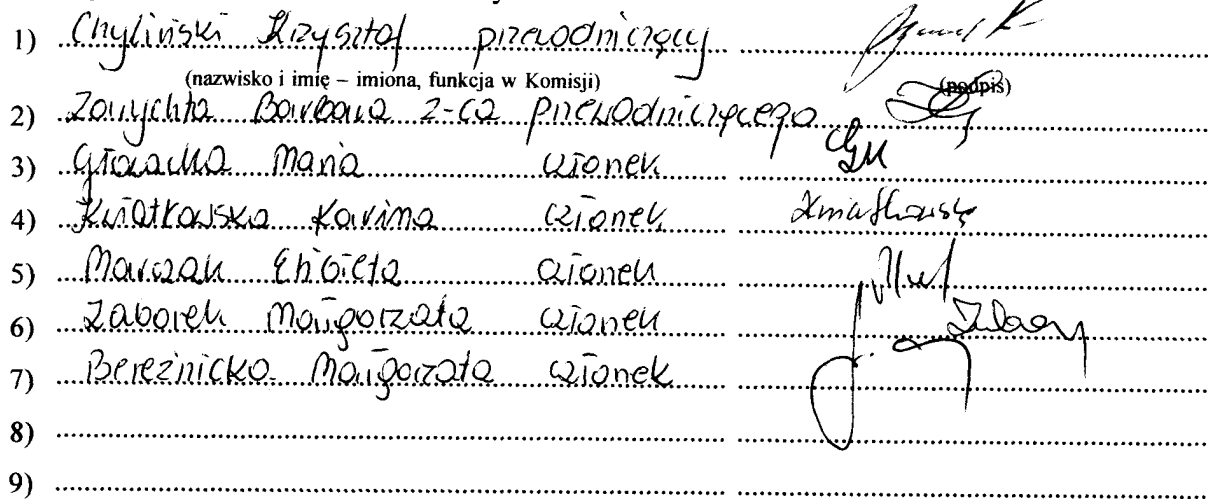 1) Chyliński Krzysztof przewodniczący
(nazwisko i imię – imiona, funkcja w Komisji) (podpis)
2) Zawychta Barbara z-ca przewodniczącego
3) Głowacka Maria członek
4) Kwiatkowska Karina członek Kwiatkowska
5) Marczak Elżbieta członek
6) Zaborek Małgorzata członek
7) Bereźnicka Małgorzata członek
8)
9)